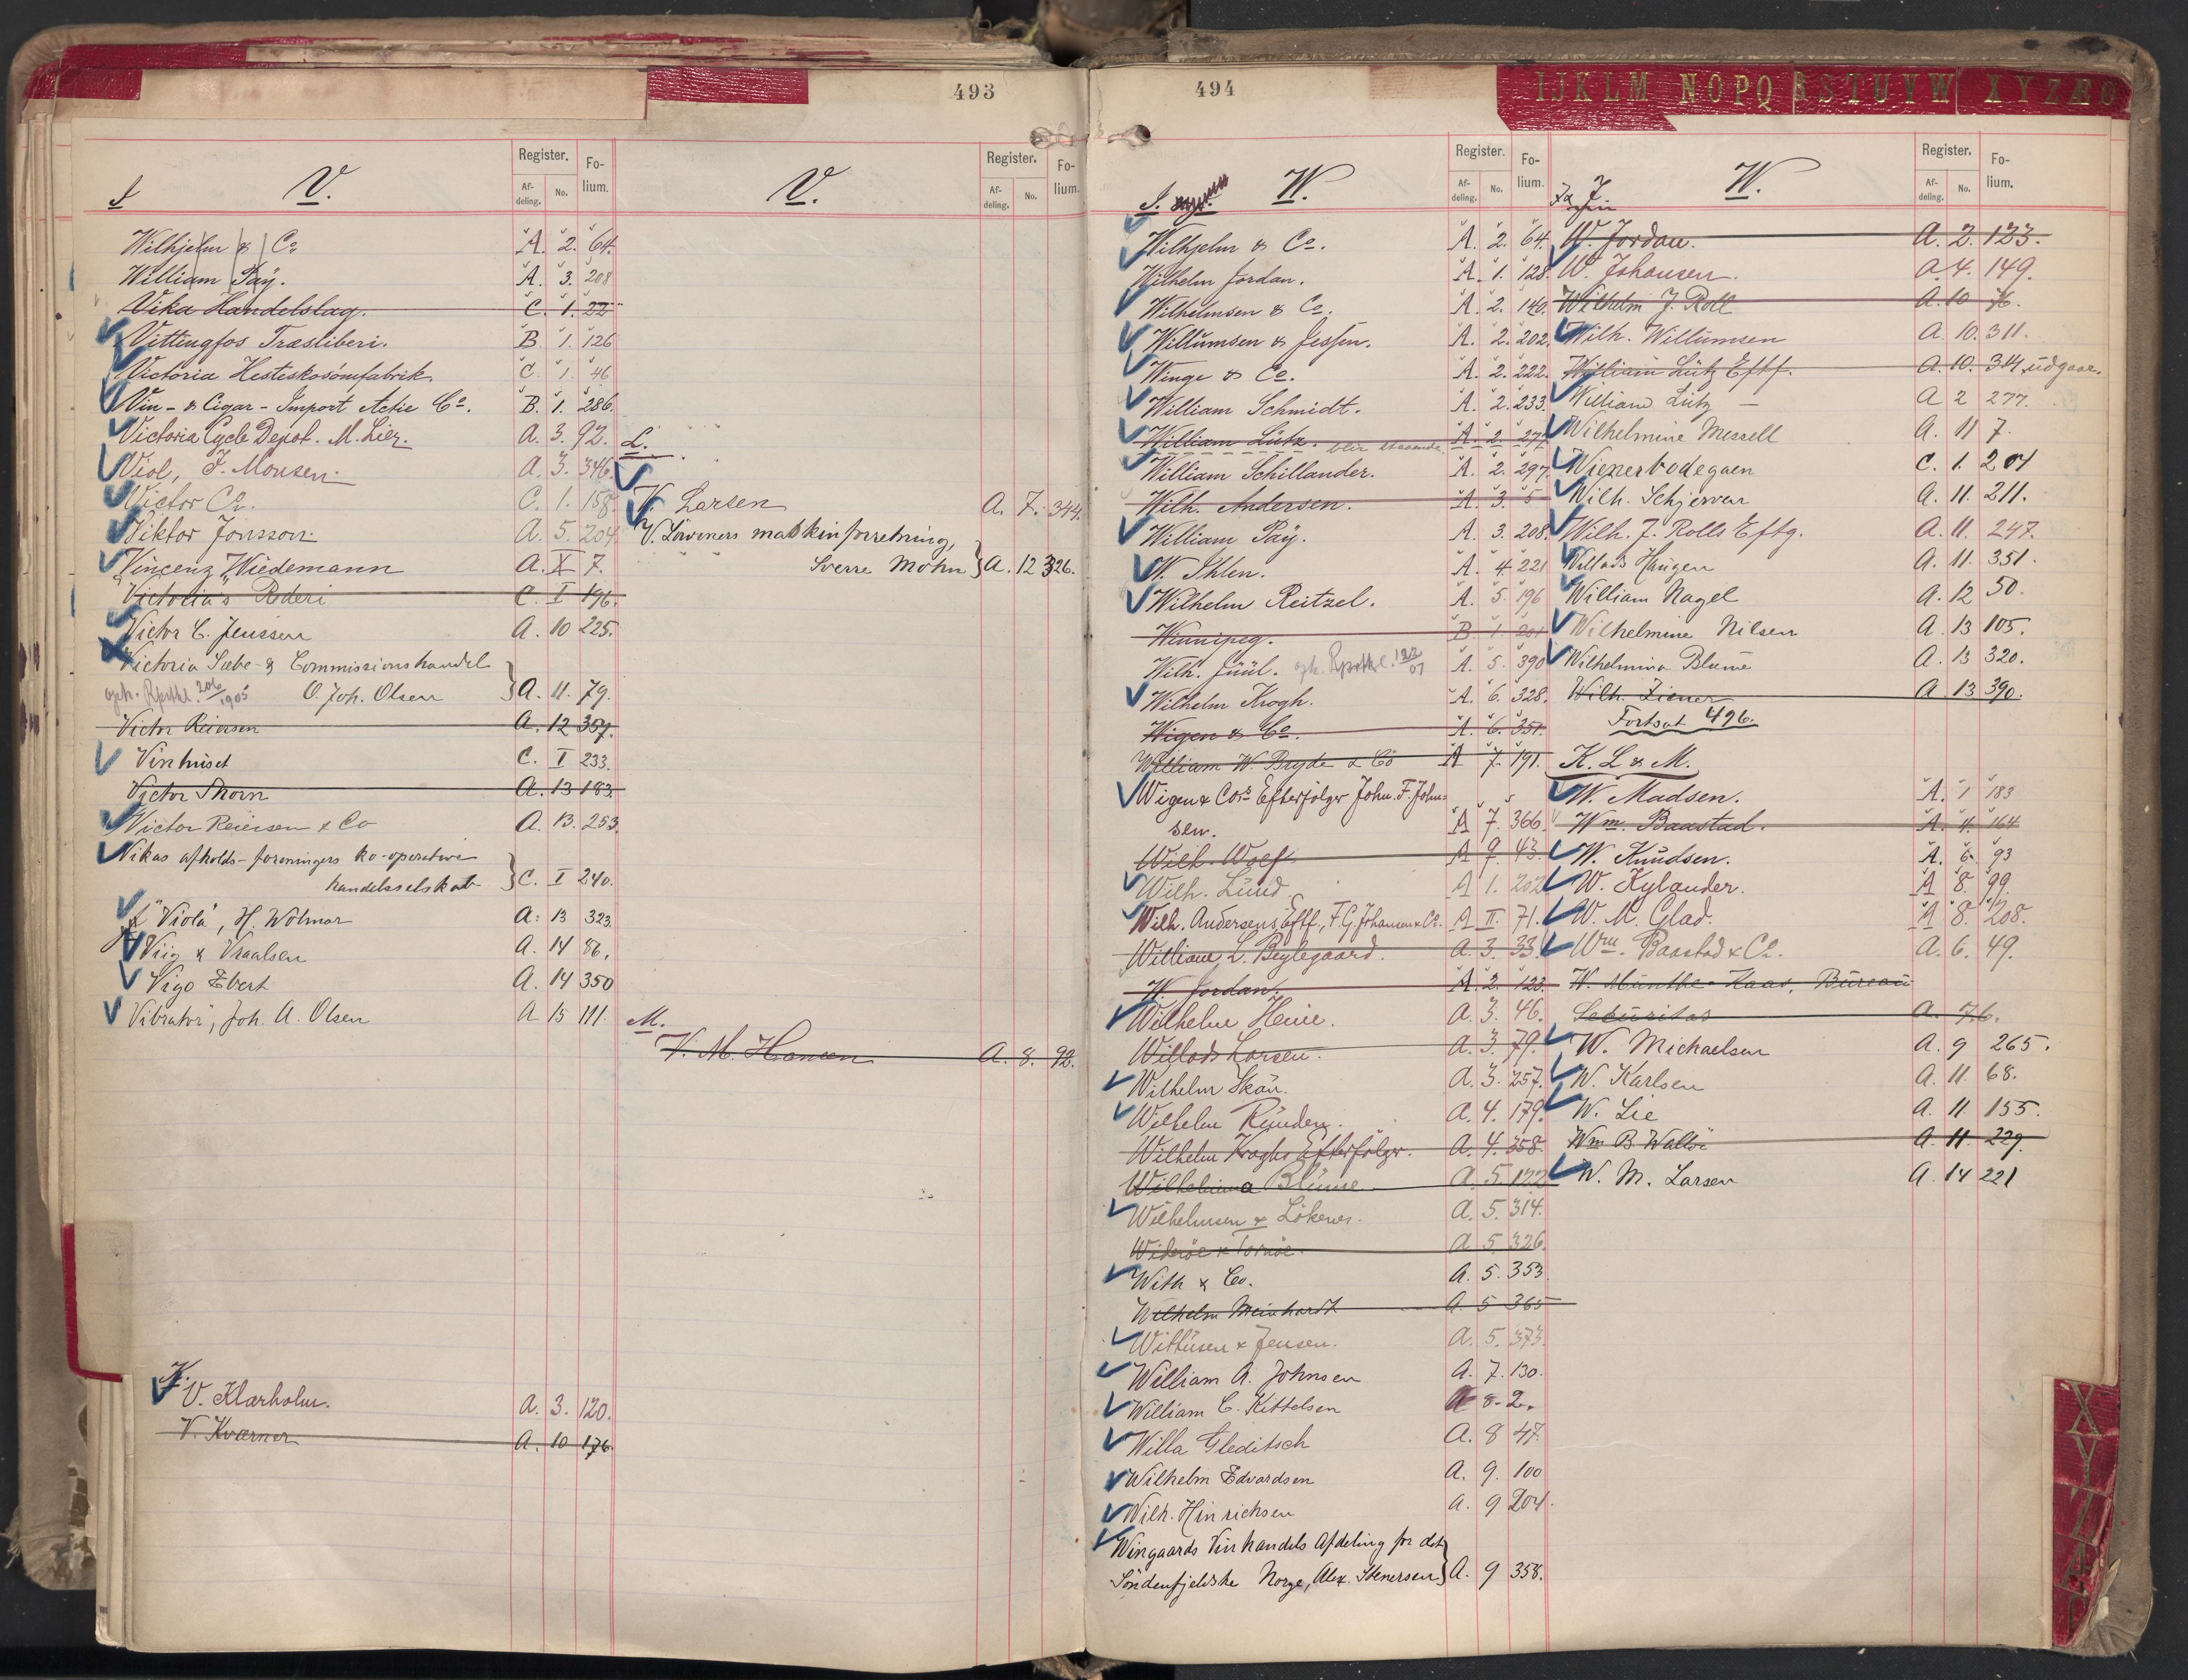 493
V.
Register. Fo-
Af- No. lium.
deling.
I
Wilhjelm & Co A. 2. 64.
William Päy. A. 3. 208
Vika Handelslag. C. 1. 22
Vittingfos Træsliberi. B 1. 126
Victoria Hesteskosömfabrik C. 1. 46
Vin- & Cigar-Import Actie Co. B. 1. 286.
Victoria Cycle Depot. M. Lier. A. 3. 92.
Viol, F. Monsen. A. 3. 346.
Victor Co. C. 1. 158.
Viktor Jonsson. A. 5. 204
Vincenz Wiedemann A. X 7.
"Victoria's" Rederi C. I 196.
Victor C. Jenssen A. 10 225.
Victoria Sæbe- & Commissionshandel
O. Joh. Olsen } A. 11. 79.
Victor Reiersen A. 12 357.
Vinhuset C. I 233.
Victor Thorn A. 13 183.
Victor Reiersen & Co A. 13. 253.
Vikas afholds-foreningers ko-operative
handelsselskab } C. I 240.
"Viola", H. Wolmar A. 13 323.
Viig & Vraalsen A. 14 86.
Vigo Ebert A. 14 350
"Vibrator", Joh. A. Olsen A 15 111.
K.
V. Klarholm. A. 3. 120.
V. Kværner A. 10 176.
V.
Register. Fo-
Af- No. lium.
deling.
L.
V. Larsen A. 7. 344.
V. Löwener's maskinforretning,
Sverre Mohn } A. 12 326.
M.
V. M. Hansen A. 8. 92.
494
IJKLM NOPQ RSTUVW XYZÆØ
W.
Register. Fo-
Af- No. lium.
deling.
I.
Wilhjelm & Co. A. 2. 64.
Wilhelm Jordan. A. 1. 128.
Wilhelmsen & Co. A. 2. 140.
Willumsen & Jessen. A. 2. 202.
Winge & Co. A. 2. 222.
William Schmidt. A. 2. 233.
William Lütz. blir staaende A. 2. 277
William Schillander. A. 2. 297.
Wilh. Andersen. A. 3. 5
William Päy. A. 3. 208.
W. Ihlen. A. 4. 221
Wilhelm Reitzel. A. 5. 196
Winnipeg. B. 1. 201
Wilh. Juul. A. 5. 390
Wilhelm Krogh. A. 6. 328.
Wigen & Co. A. 6. 351.
William W. Bryde & Co A 7. 191.
Wigen & Co's Efterfölger John. F. John-
sen. A 7. 366.
Wilh. Wolf A 9. 43.
Wilh. Lund A 1. 202
Wilh. Andersens Eftf., F. G. Johansen & Co. A II. 71.
William L. Beylegaard. A. 3. 33.
W. Jordan. A. 2. 123.
Wilhelm Heine. A. 3. 46.
Willads Larsen. A. 3. 79.
Wilhelm Skou. A. 3. 257.
Wilhelm Runden. A. 4. 179.
Wilhelm Kroghs Efterfölger. A. 4. 358.
Wilhelmina Blume A. 5. 122
Wilhelmsen & Lökenes. A. 5. 314.
Wideröe & Tornöe. A 5 326.
With & Co. A. 5. 353.
Wilhelm Meinhardt A 5 365
Wittusen & Jensen. A. 5. 373.
William A. Johnsen A. 7. 130.
William C. Kittelsen A 8. 2.
Willa Gleditsch A. 8 47.
Wilhelm Edvardsen A. 9. 100
Wilh. Hinrichsen A. 9 204.
Wingaards Vinhandels Afdeling for det
Söndenfjeldske Norge, Alex. Stenersen } A. 9 358.
W.
Register. Fo-
Af- No. lium.
deling.
W. Jordan. A. 2. 123.
W. Johansen. A. 4. 149.
Wilhelm J. Roll A. 10 76.
Wilh. Willumsen A. 10. 311.
William Lütz Eftf. A. 10. 314 udgaar.
William Lütz — A 2 277.
Wilhelmine Messell A. 11 7.
Wienerbodegaen C. 1. 201
Wilh. Schjerven A. 11. 211.
Wilh. J. Rolls Eftg. A. 11. 247.
Willads Haugen A. 11. 351.
William Nagel A. 12 50.
Wilhelmine Nilsen A. 13 105.
Wilhelmina Blume A. 13 320.
Wilh. Ziener A 13 390.
Fortsat 496.
K. L & M.
W. Madsen. A. 1 183
Wm. Baastad. A. 4. 164
W. Knudsen. A. 6. 93
W. Kylander. A 8. 99.
W. M. Glad. A 8. 208.
Wm. Baastad & Co. A. 6. 49.
W. Munthe-Kaas, Bureau
Securitas A. 7 6.
W. Michaelsen A. 9 265.
W. Karlsen A. 11. 68.
W. Lie A. 11 155.
Wm B Wallöe A. 11. 229.
W. M. Larsen A. 14 221